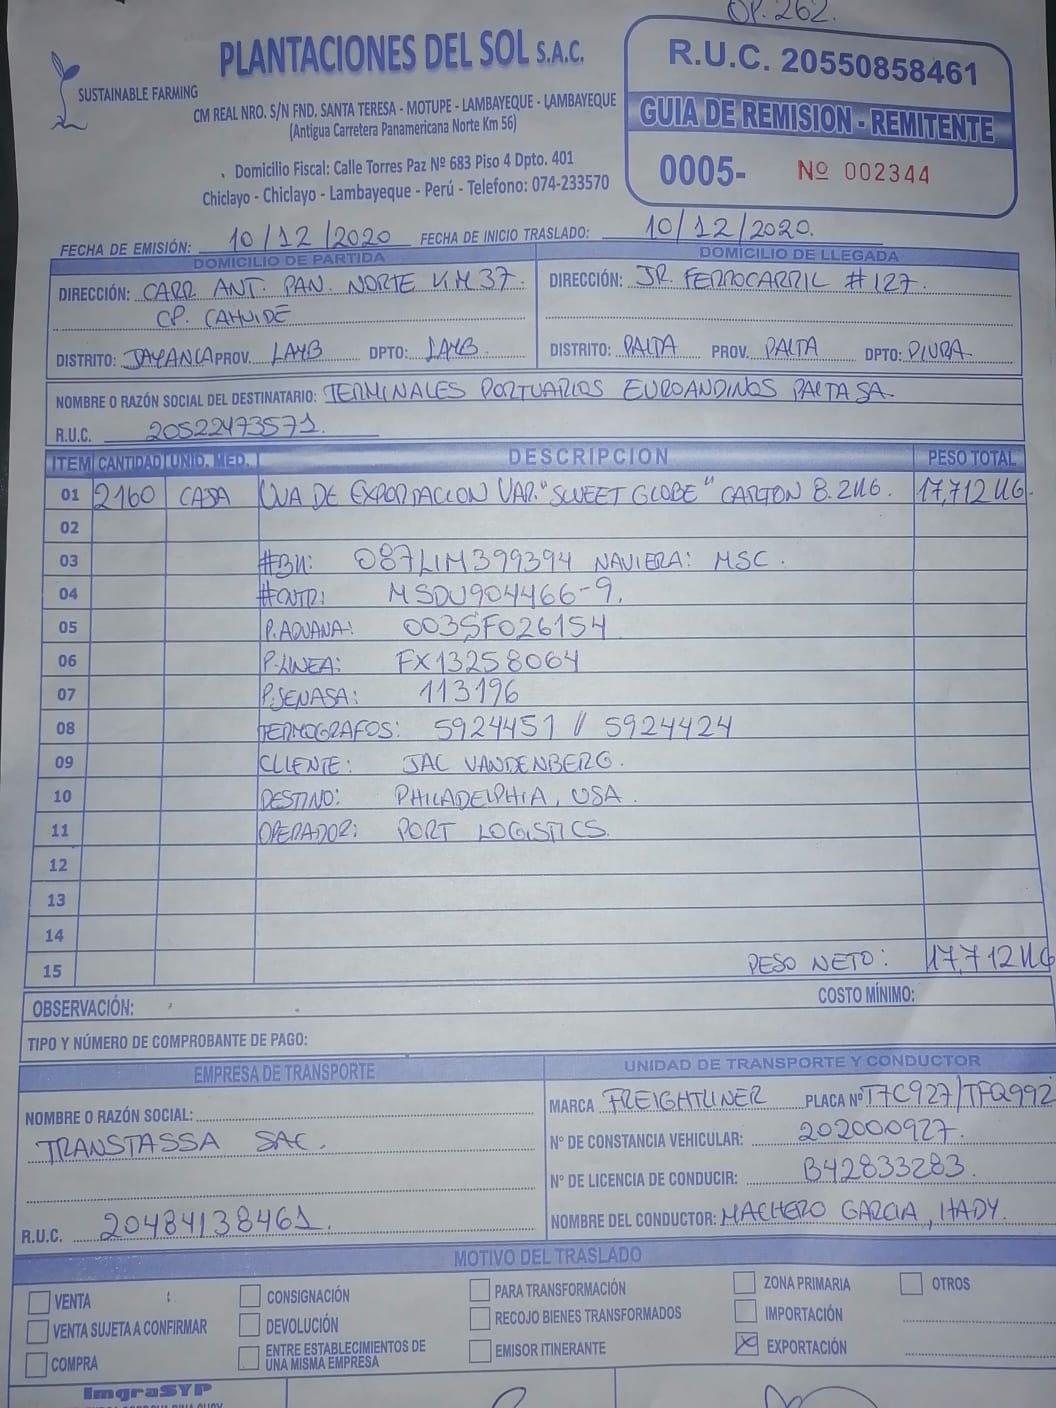 OP. 262.
PLANTACIONES DEL SOL S.A.C.
SUSTAINABLE FARMING
CM REAL NRO. S/N FND. SANTA TERESA - MOTUPE - LAMBAYEQUE - LAMBAYEQUE
(Antigua Carretera Panamericana Norte Km 56)
Domicilio Fiscal: Calle Torres Paz Nº 683 Piso 4 Dpto. 401
Chiclayo - Chiclayo - Lambayeque - Perú - Telefono: 074-233570
R.U.C. 20550858461
GUIA DE REMISION - REMITENTE
0005- Nº 002344
FECHA DE EMISIÓN: 10/12/2020 FECHA DE INICIO TRASLADO: 10/12/2020.
DOMICILIO DE PARTIDA
DIRECCIÓN: CARR ANT. PAN. NORTE KM 37.
CP. CAHUIDE
DISTRITO: JAYANCA PROV. LAMB DPTO: LAMB.
DOMICILIO DE LLEGADA
DIRECCIÓN: JR. FERROCARRIL #127.
DISTRITO: PAITA PROV. PAITA DPTO: PIURA.
NOMBRE O RAZÓN SOCIAL DEL DESTINATARIO: TERMINALES PORTUARIOS EUROANDINOS PAITA SA.
R.U.C. 20522473571.
ITEM CANTIDAD UNID. MED. DESCRIPCION PESO TOTAL
01 2160 CAJA UVA DE EXPORTACION VAR. "SWEET GLOBE" CARTON 8.2KG. 17,712 KG.
02
03 #BK: 087LIM399394 NAVIERA: MSC.
04 #CNTR: MSDU904466-9.
05 P.ADUANA: 003SF026154
06 P.LINEA: FX13258064
07 P.SENASA: 113196
08 TERMOGRAFOS: 5924451 // 5924424
09 CLIENTE: JAC VANDENBERG.
10 DESTINO: PHILADELPHIA, USA.
11 OPERADOR: PORT LOGISTICS.
12
13
14
15 PESO NETO: 17,712 KG
OBSERVACIÓN: COSTO MÍNIMO:
TIPO Y NÚMERO DE COMPROBANTE DE PAGO:
EMPRESA DE TRANSPORTE
NOMBRE O RAZÓN SOCIAL:
TRANSTASSA SAC.
R.U.C. 20484138461.
UNIDAD DE TRANSPORTE Y CONDUCTOR
MARCA FREIGHTLINER PLACA Nº T7C927/TFQ992
Nº DE CONSTANCIA VEHICULAR: 202000927.
Nº DE LICENCIA DE CONDUCIR: B42833283.
NOMBRE DEL CONDUCTOR: MACHERO GARCIA, HADY.
MOTIVO DEL TRASLADO
VENTA
VENTA SUJETA A CONFIRMAR
COMPRA
CONSIGNACIÓN
DEVOLUCIÓN
ENTRE ESTABLECIMIENTOS DE
UNA MISMA EMPRESA
PARA TRANSFORMACIÓN
RECOJO BIENES TRANSFORMADOS
EMISOR ITINERANTE
ZONA PRIMARIA
IMPORTACIÓN
EXPORTACIÓN
OTROS
ImgraSYP